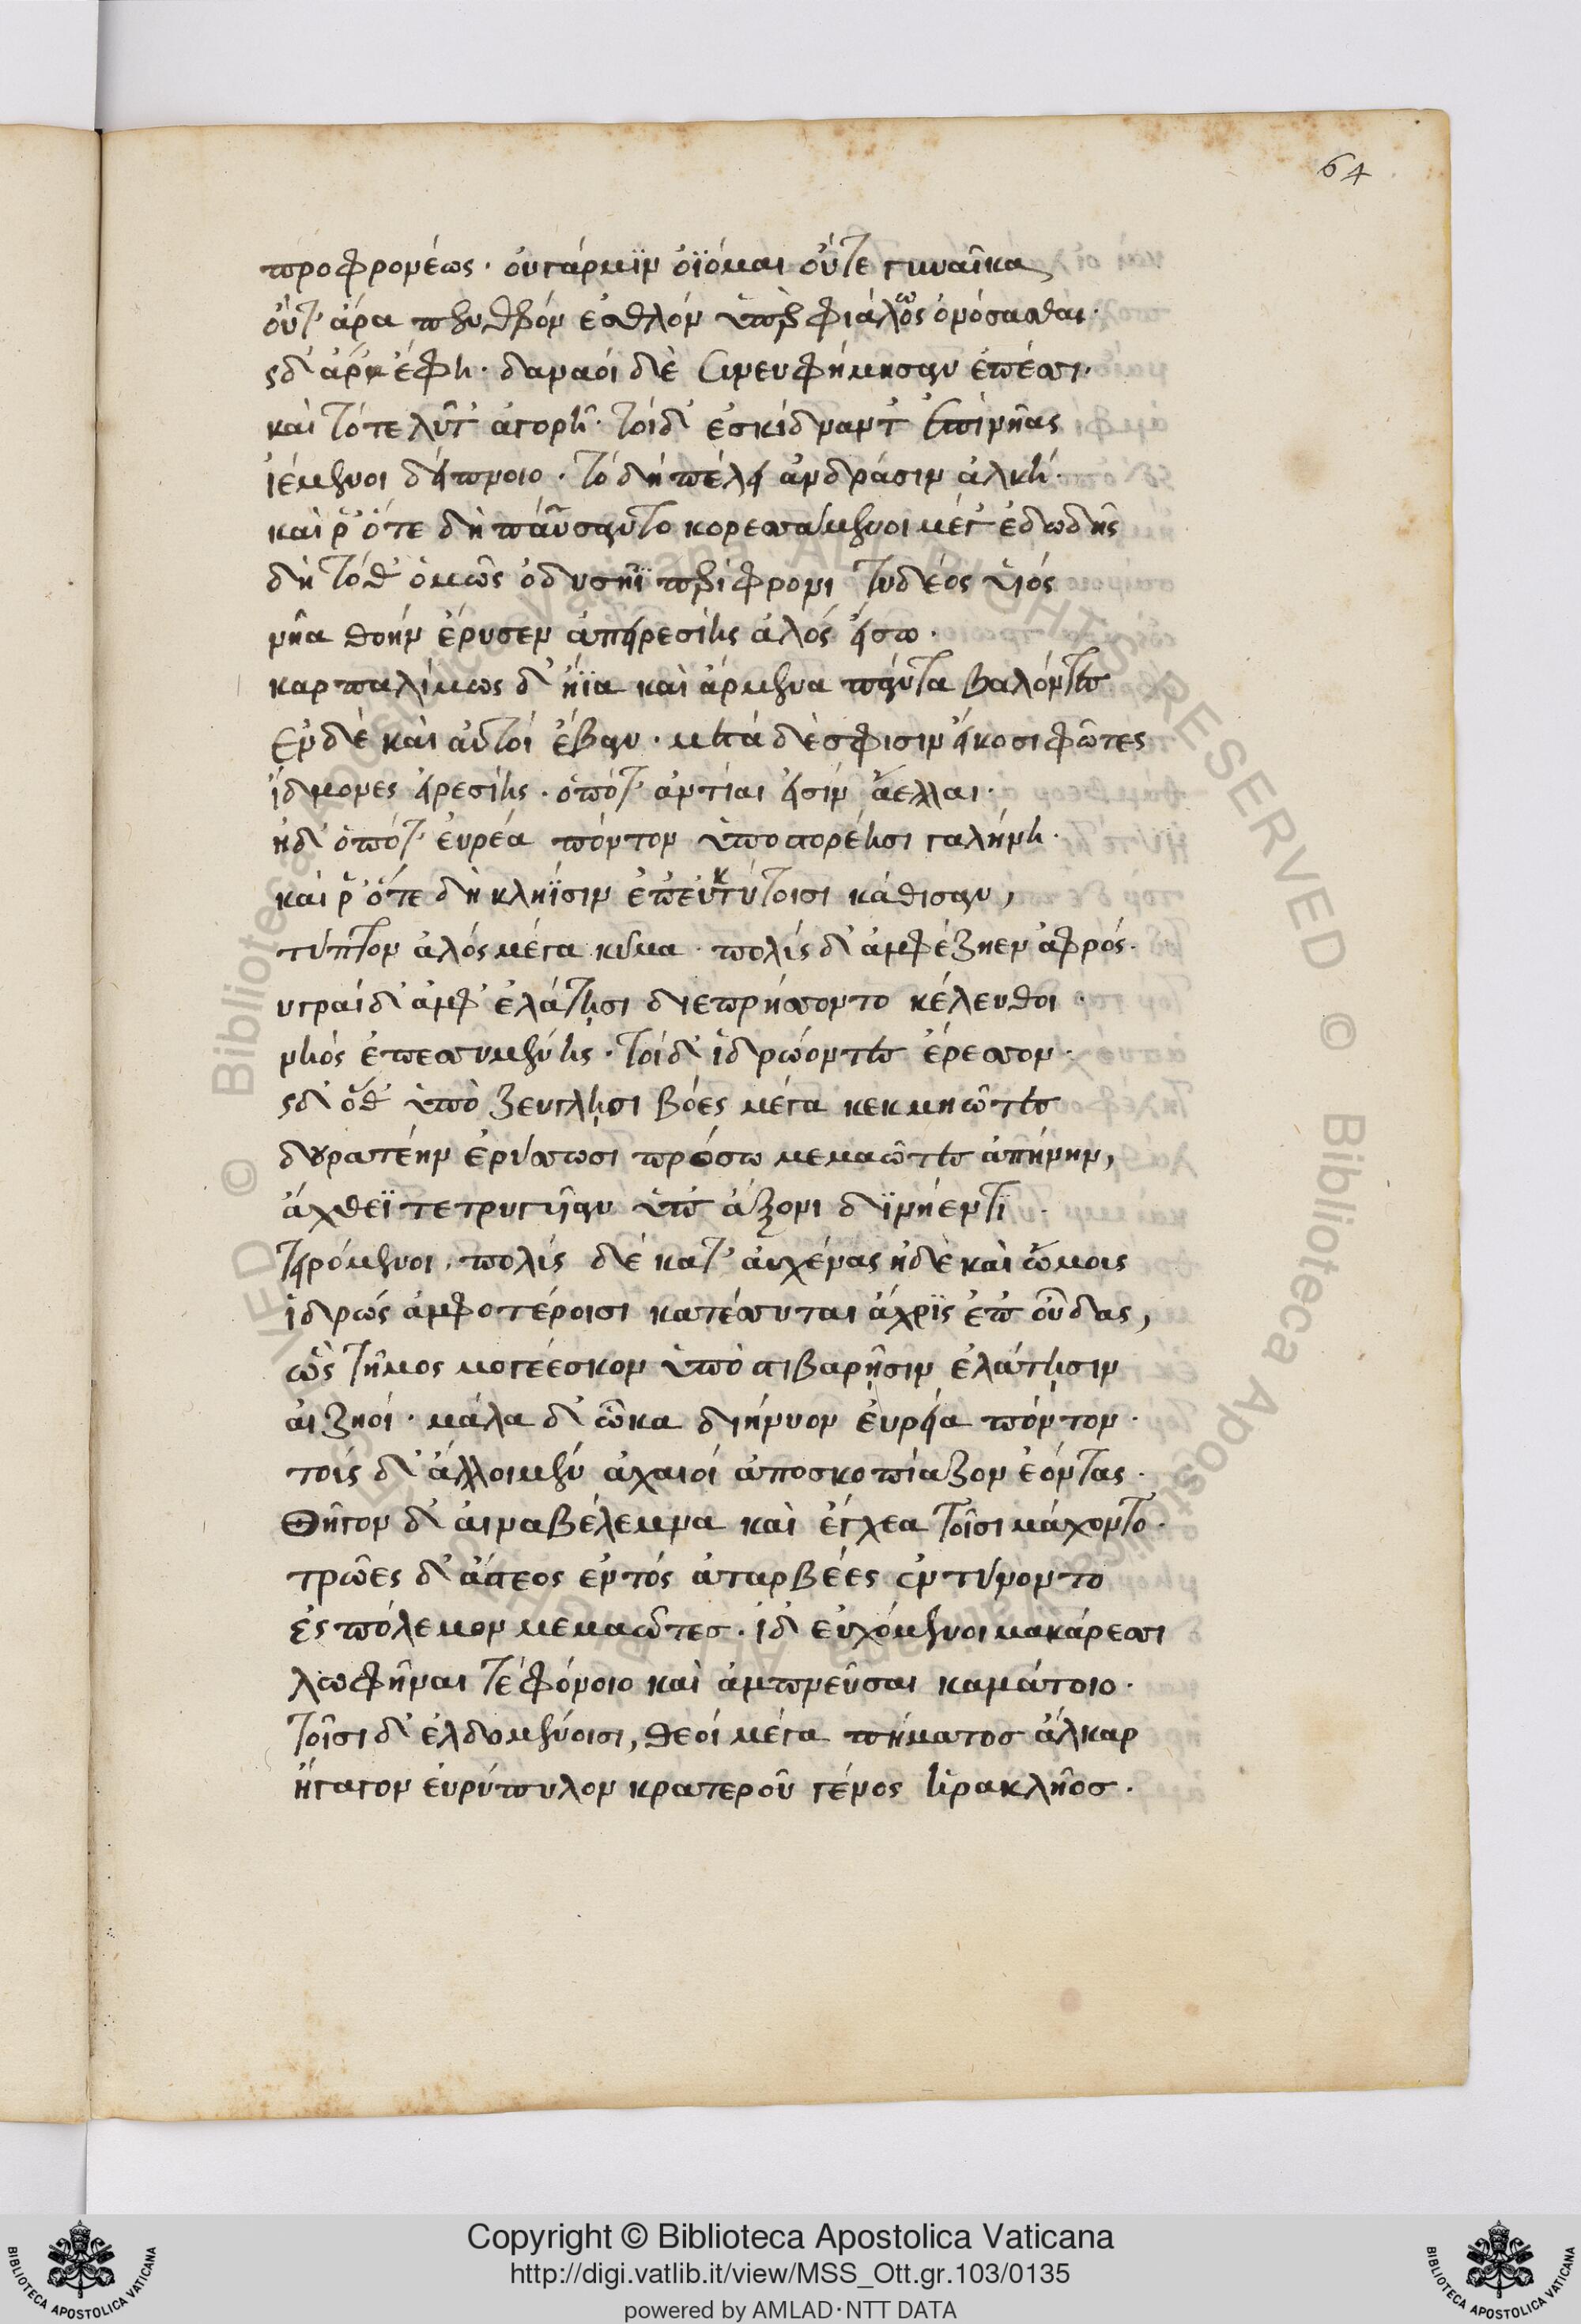 64
προφρονέως· οὐ γάρ μϊν ὀΐομαι οὔτε γυναῖκα
οὔτ' ἄρα πενθερὸν ἐσθλὸν ὑπερφιάλως ὀνόσασθαι·
ὣς ἄρ' ἔφη· δαναοὶ δὲ συνευφήμησαν ἔπεσσι·
καὶ τότε λῦτ' ἀγορή· τοὶ δ' ἐσκίδναντ' ἐπὶ νῆας
ἱέμενοι δείπνοιο· τὸ δὴ πέλει ἀνδράσιν ἀλκή·
καί ῥ' ὅτε δὴ παύσαντο κορεσσάμενοι μέγ' ἐδωδῆς
δὴ τόθ' ὁμῶς ὀδυσῆϊ περίφρονι τυδέος υἱός
νῆα θοὴν ἔρυσεν ἀπειρεσίης ἁλὸς εἴσω·
καρπαλίμως δ' ἤϊα καὶ ἄρμενα πάντα βαλόντες
ἐν δὲ καὶ αὐτοὶ ἔβαν· μετὰ δέ σφισιν εἴκοσι φῶτες
ἴδμονες εἰρεσίης· ὁπότ' ἀντίαι εἰσὶν ἄελλαι·
ἠδ' ὁπότ' εὐρέα πόντον ὑποστορέησι γαλήνη·
καί ῥ' ὅτε δὴ κληῖσιν ἐπ' εὐκτύτοισι κάθισαν,
τύπτον ἁλὸς μέγα κῦμα· πολὺς δ' ἀμφέζηεν ἀφρός·
ὑγραὶ δ' ἀμφ' ἐλάτῃσι διεπρήσσοντο κέλευθοι
νηὸς ἐπεσσυμένης· τοὶ δ' ἱδρώοντες ἔρεσσον·
ὣς δ' ὅθ' ὑπὸ ζεύγλῃσι βόες μέγα κεκμηῶτες
δουρατέην ἐρύσωσι πρόσω μεμαῶτες ἀπήνην,
ἄχθεϊ τετρυγῆαν ὑπ' ἄξονι δϊνήεντϊ
τειρόμενοι, πολὺς δὲ κατ' αὐχένας ἠδὲ καὶ ὤμοις
ἱδρὼς ἀμφοτέροισι κατέσσυται ἄχρϊς ἐπ' οὖδας,
ὣς τῆμος μογέεσκον ὑπὸ στιβαρῇσιν ἐλάτῃσιν
αἰζηοί· μάλα δ' ὦκα διήνυον εὐρεία πόντον·
τοὺς δ' ἄλλοι μὲν ἀχαιοὶ ἀποσκοπίαζον ἐόντας·
θῆγον δ' αἰναβέλεμνα καὶ ἔγχεα τοῖσι μάχοντο·
τρῶες δ' ἄστεος ἐντὸς ἀταρβέες ἐντύνοντο
ἐς πόλεμον μεμαῶτες· ἰδ' εὐχόμενοι μακάρεσσι
λωφῆναι τὲ φόνοιο καὶ ἀμπνεῦσαι καμάτοιο·
τοῖσι δ' ἐλδομένοισι, θεοὶ μέγα πήματος ἄλκαρ
ἤγαγον εὐρύπυλον κρατεροῦ γένος ἡρακλῆος·
© Biblioteca Apostolica Vaticana ALL RIGHTS RESERVED
Copyright © Biblioteca Apostolica Vaticana
http://digi.vatlib.it/view/MSS_Ott.gr.103/0135
powered by AMLAD·NTT DATA
BIBLIOTECA APOSTOLICA VATICANA
BIBLIOTECA APOSTOLICA VATICANA